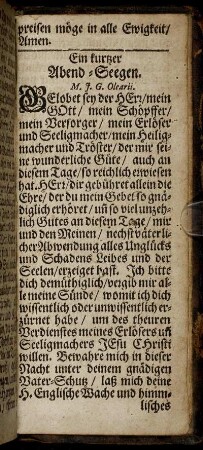 preisen möge in alle Ewigkeit/
Amen.
Ein kurtzer
Abend-Seegen.
M. J. G. Olearii.
GElobet sey der HErr/mein
GOtt / mein Schöpffer/
mein Versorger / mein Erlöser
und Seeligmacher/mein Heilig-
macher und Tröster/der mir sei-
ne wunderliche Güte/ auch an
diesem Tage/so reichlich erwiesen
hat. HErr/dir gebühret allein die
Ehre/der du mein Gebet so gnä-
diglich erhöret/uñ so viel unzeh-
lich Gutes an diesem Tage/mir
und den Meinen/ nechst väterli-
cher Abwendung alles Unglücks
und Schadens Leibes und der
Seelen/erzeiget hast. Ich bitte
dich demüthiglich/vergib mir al-
le meine Sünde/ womit ich dich
wissentlich oder unwissentlich er-
zürnet habe/ um des theuren
Verdienstes meines Erlösers uñ
Seeligmachers JEsu CHristi
willen. Bewahre mich in dieser
Nacht unter deinem gnädigen
Vater-Schutz/ laß mich deine
H. Englische Wache und himm-
lisches